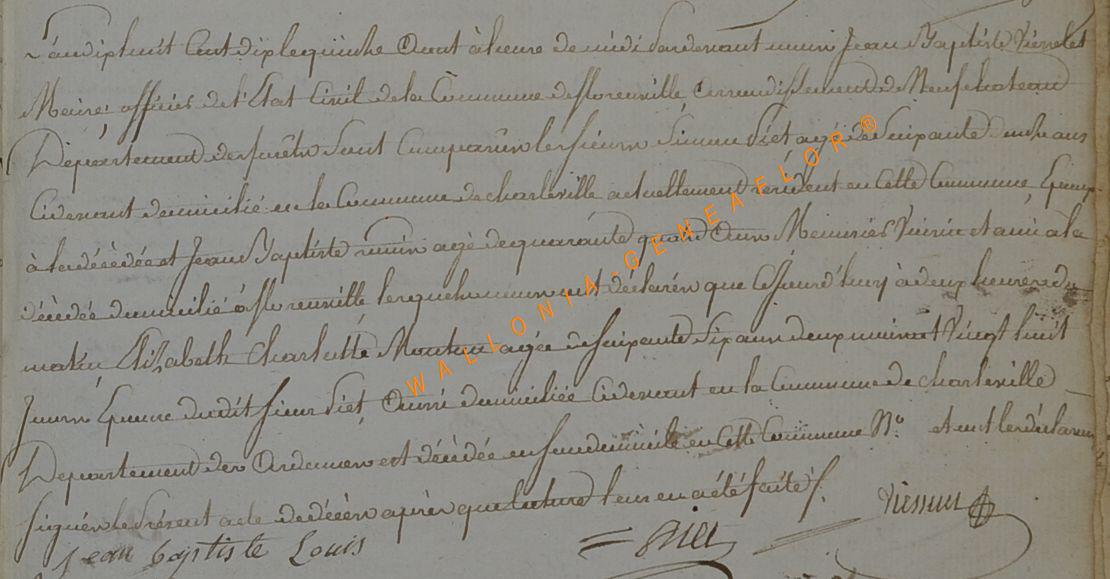 L'an dix huit Cent dix le quinze Aout à heure de midi Pardevant nous Jean Baptiste
Maire officier de l'Etat Civil de la Commune de florenville, Arrondissement de Neufchateau
Département des forêts sont Comparus les sieurs Simon Piet agé de soixante douze ans
Cidevant domicilié en la Commune de charleville actuellement résident en Cette Commune Epoux
à la décédée et Jean Baptiste agé de quarante quatre Ans Menuisier Voisin et ami à la
décédée domicilié à florenville lesquels nous ont déclarés que Cejourd'huy à deux heures du
matin Elizabeth Charlotte agée de soixante six ans deux mois et Vingt huit
Jours Epouse dudit sieur Piet domiciliée Cidevant en la Commune de charleville
Departement des Ardennes est décédée en son domicile en Cette Commune N.° et ont les déclarans
signés le Présent acte de décès après que lecture leur en a été faite
Jean baptiste Louis
WALLONIA-GENEAFLOR®